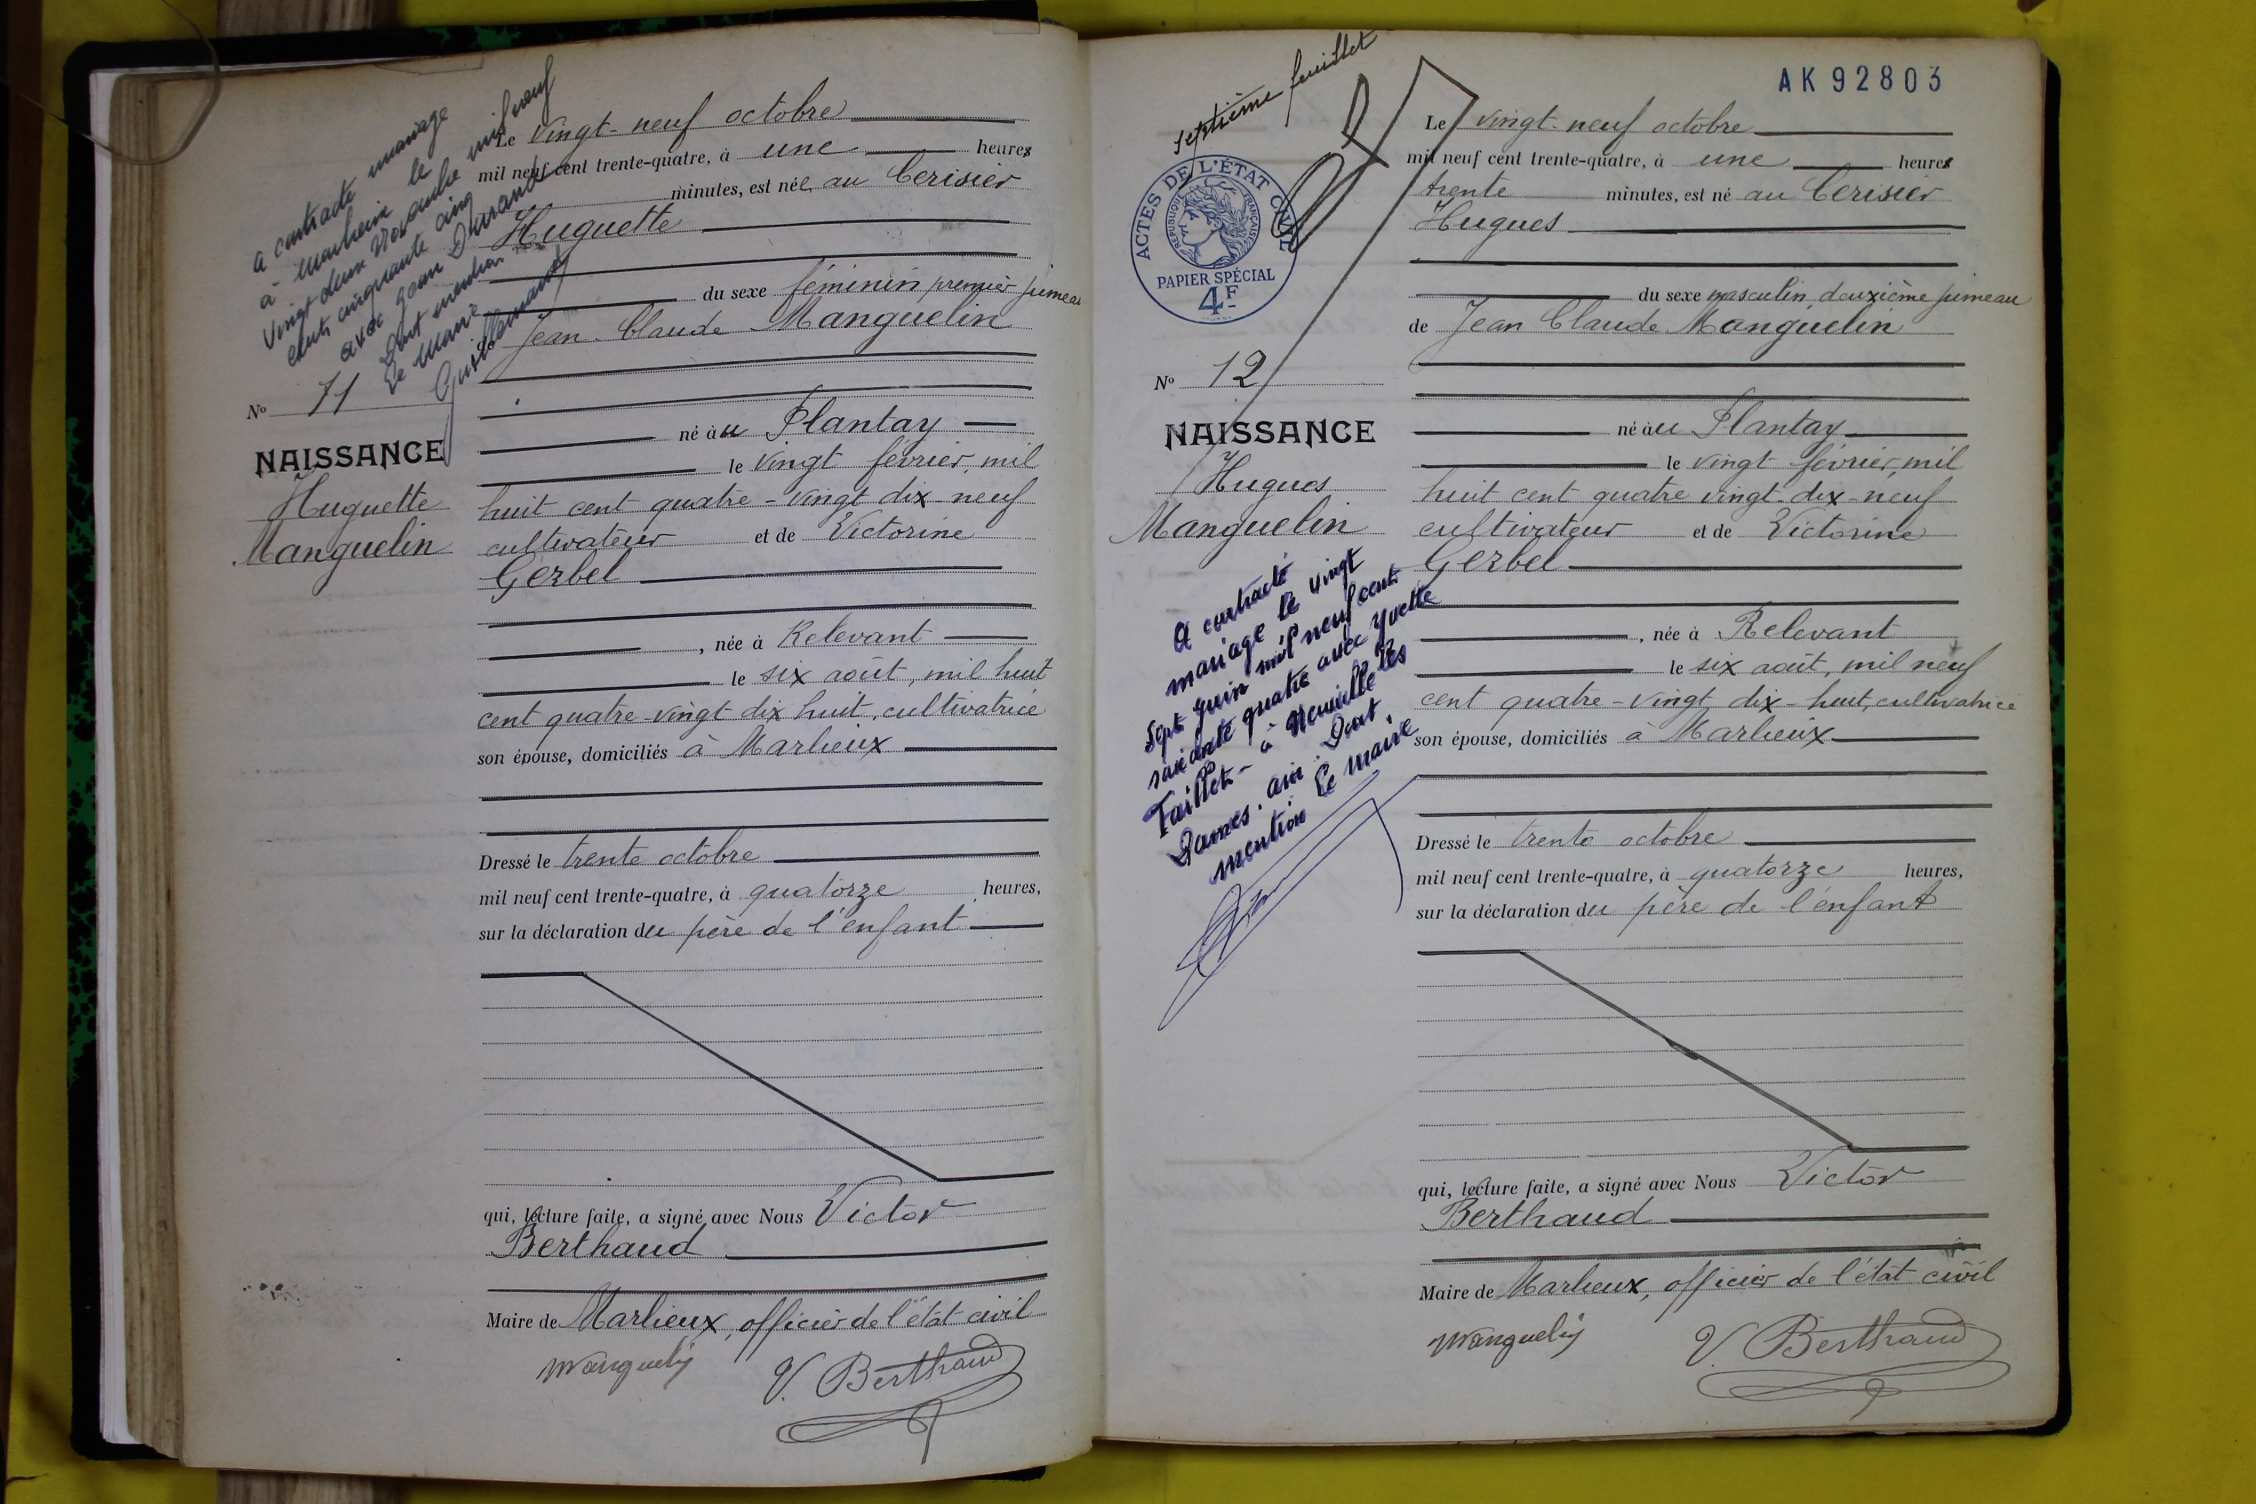 a contracté mariage
à Marlieux le
vingt deux Novembre mil neuf
cent cinquante cinq
avec Jean Durand
Dont mention
Le Maire
Guillemain
Le vingt-neuf octobre
mil neuf cent trente-quatre, à une heures
minutes, est née au Cerisier
Huguette
du sexe féminin premier jumeau
Jean Claude Manguelin
né au Plantay
le vingt février, mil
huit cent quatre-vingt dix-neuf
cultivateur et de Victorine
Gerbel
, née à Relevant
le six août, mil huit
cent quatre-vingt dix huit, cultivatrice
son épouse, domiciliés à Marlieux
Dressé le trente octobre
mil neuf cent trente-quatre, à quatorze heures,
sur la déclaration du père de l'enfant
qui, lecture faite, a signé avec Nous Victor
Berthaud
Maire de Marlieux, officier de l'état civil
Manguelin
V. Berthaud
No 11
NAISSANCE
Huguette
Manguelin
septième feuillet
AK 92803
ACTES DE L'ÉTAT CIVIL
RÉPUBLIQUE FRANÇAISE
PAPIER SPÉCIAL
4F
No 12
NAISSANCE
Hugues
Manguelin
A contracté
mariage le vingt
sept juin mil neuf cent
soixante quatre avec Yvette
Taillet - à Neuville les
Dames. Ain. Dont
mention Le Maire
Le vingt-neuf octobre
mil neuf cent trente-quatre, à une heures
trente minutes, est né au Cerisier
Hugues
du sexe masculin, deuxième jumeau
de Jean Claude Manguelin
né au Plantay
le vingt février, mil
huit cent quatre vingt-dix-neuf
cultivateur et de Victorine
Gerbel
, née à Relevant
le six août, mil neuf
cent quatre-vingt, dix-huit, cultivatrice
son épouse, domiciliés à Marlieux
Dressé le trente octobre
mil neuf cent trente-quatre, à quatorze heures,
sur la déclaration du père de l'enfant
qui, lecture faite, a signé avec Nous Victor
Berthaud
Maire de Marlieux, officier de l'état civil
Manguelin
V. Berthaud